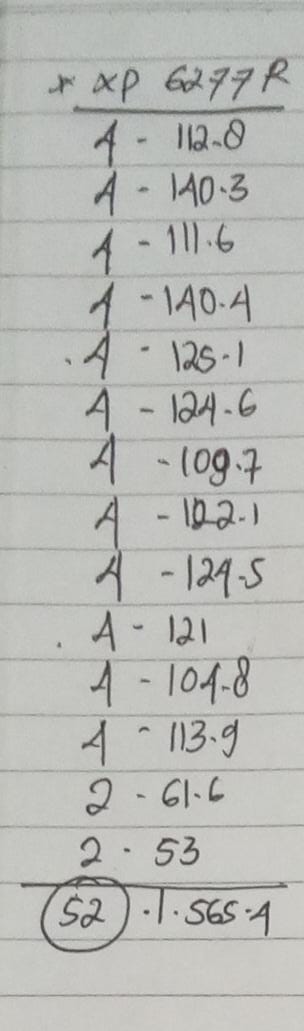 x xp 6277 R
4 - 112.8
4 - 140.3
4 - 111.6
4 - 140.4
. 4 - 125.1
4 - 124.6
4 - 109.7
4 - 122.1
4 - 124.5
. 4 - 121
4 - 104.8
4 - 113.9
2 - 61.6
2 - 53
52 . 1.565.4